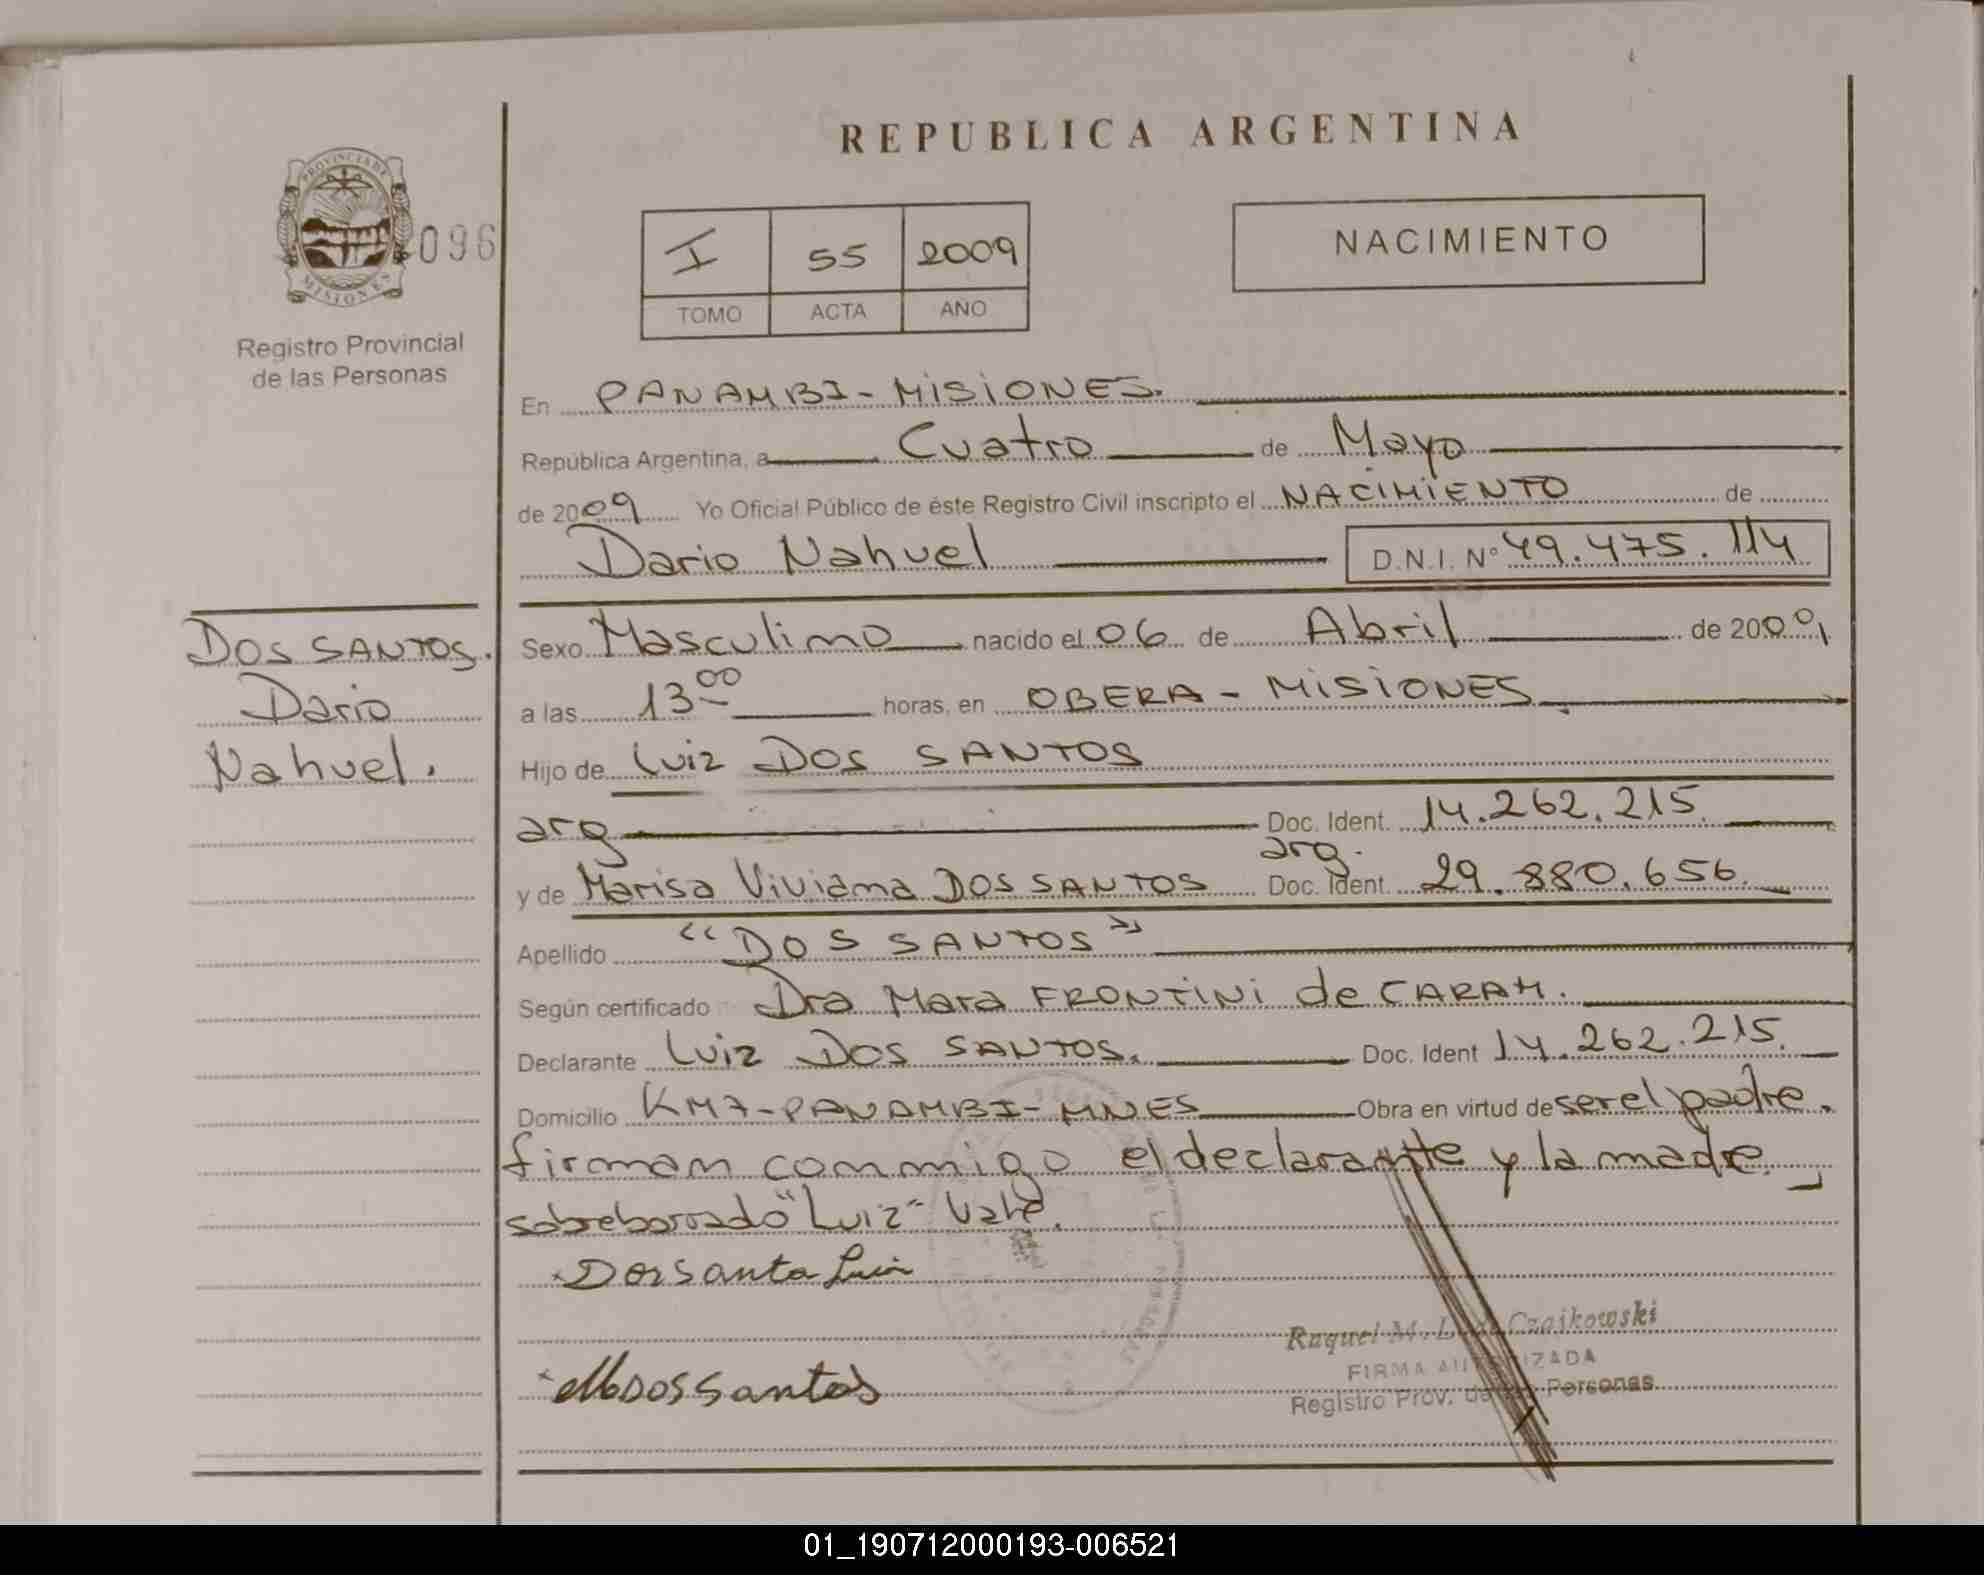 REPUBLICA ARGENTINA
PROVINCIA DE
MISIONES
096
Registro Provincial
de las Personas
I 55 2009
TOMO ACTA AÑO
NACIMIENTO
En PANAMBI - MISIONES.
República Argentina, a Cuatro de Mayo
de 2009 Yo Oficial Público de éste Registro Civil inscripto el NACIMIENTO de
Dario Nahuel D.N.I. N° 49.475.114
DOS SANTOS.
Dario
Nahuel.
Sexo Masculino nacido el 06 de Abril de 2009
a las 13 00 horas, en OBERA - MISIONES
Hijo de Luiz DOS SANTOS
arg Doc. Ident. 14.262.215
arg.
y de Marisa Viviana DOS SANTOS Doc. Ident 29.880.656
Apellido "DOS SANTOS"
Según certificado Dra Mara FRONTINI de CARAM.
Declarante Luiz DOS SANTOS. Doc. Ident 14.262.215.
Domicilio KM7-PANAMBI-MNES Obra en virtud de ser el padre.
firman conmigo el declarante y la madre.
sobreborrado "Luiz" Vale.
Dossanto Luis
Dossantos
Raquel M. Czajkowski
FIRMA AUTORIZADA
Registro Prov. de las Personas
01_190712000193-006521